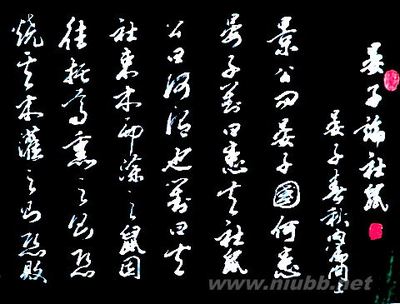 晏子論社鼠
晏子春秋内篇问上
景公问晏子國何患
晏子對曰患夫社鼠
公曰何谓也對曰夫
社束木而涂之鼠因
往托焉熏之则恐
烧其木灌之则恐败
www.niubb.net